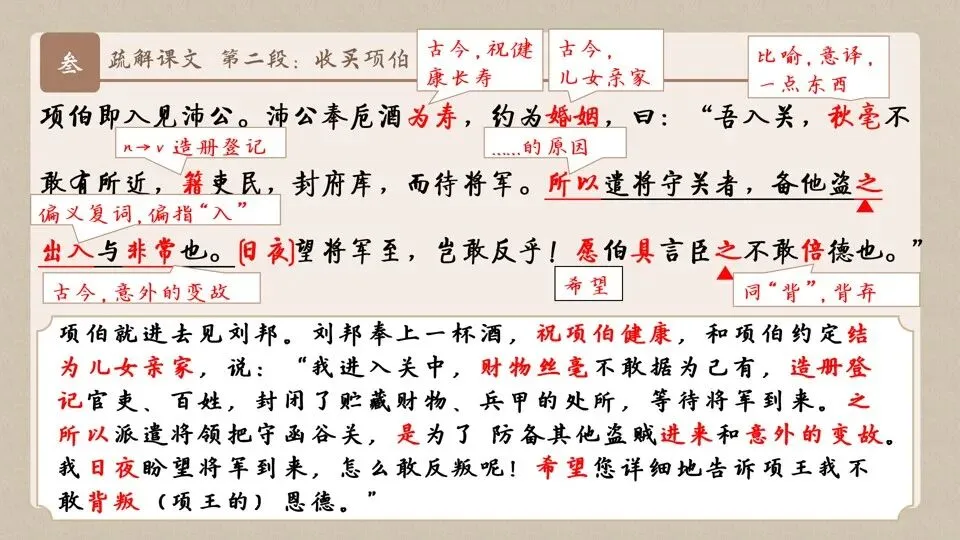 叁
疏解课文 第二段：收买项伯
古今，祝健
康长寿
古今，
儿女亲家
比喻，意译，
一点东西
项伯即入见沛公。沛公奉卮酒为寿，约为婚姻，曰：“吾入关，秋毫不
n→v 造册登记
……的原因
敢有所近，籍吏民，封府库，而待将军。所以遣将守关者，备他盗之
偏义复词，偏指“入”
出入与非常也。[日夜]望将军至，岂敢反乎！愿伯具言臣之不敢倍德也。”
古今，意外的变故
希望
同“背”，背弃
项伯就进去见刘邦。刘邦奉上一杯酒，祝项伯健康，和项伯约定结
为儿女亲家，说：“我进入关中，财物丝毫不敢据为己有，造册登
记官吏、百姓，封闭了贮藏财物、兵甲的处所，等待将军到来。之
所以派遣将领把守函谷关，是为了 防备其他盗贼进来和意外的变故。
我日夜盼望将军到来，怎么敢反叛呢！希望您详细地告诉项王我不
敢背叛（项王的）恩德。”